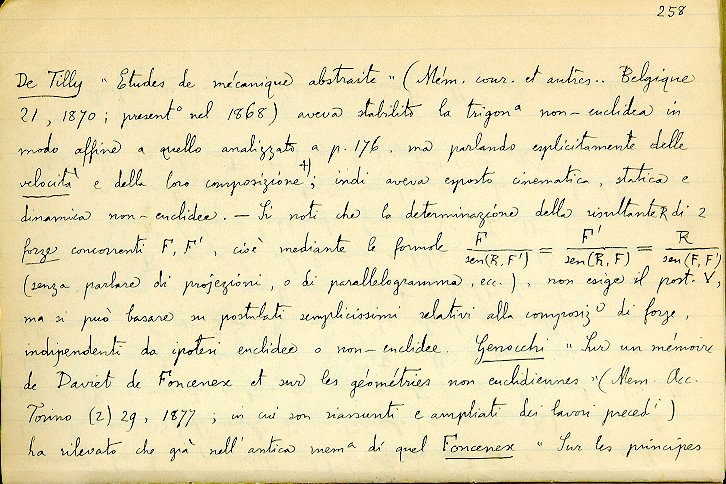 258
De Tilly "Etudes de mécanique abstraite" (Mém. cour. et autres.. Belgique
21, 1870; presentº nel 1868) aveva stabilito la trigonª non-euclidea in
modo affine a quello analizzato a p. 176, ma parlando esplicitamente delle
velocità e della loro composizione +); indi aveva esposto cinematica, statica e
dinamica non-euclidee. — Si noti che la determinazione della risultante R di 2
forze concorrenti F, F', cioè mediante le formole F/sen(R,F') = F'/sen(R,F) = R/sen(F,F')
(senza parlare di projezioni, o di parallelogramma, ecc.), non esige il post. V,
ma si può basare su postulati semplicissimi relativi alla composizº di forze,
indipendenti da ipotesi euclidee o non-euclidee. Genocchi "Sur un mémoire
de Daviet de Foncenex et sur les géométries non euclidiennes" (Mem. Acc.
Torino (2) 29, 1877; in cui son riassunti e ampliati dei lavori precedⁱ)
ha rilevato che già nell'antica memª di quel Foncenex "Sur les principes